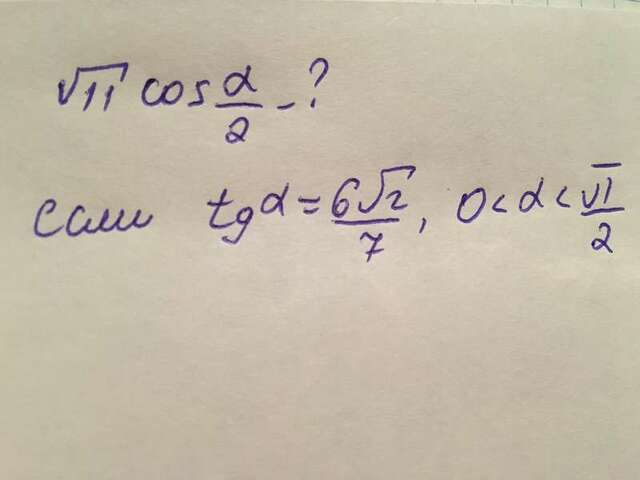 √11 cos α/2 - ?
Если tgα = 6√2/7, 0 < α < π/2